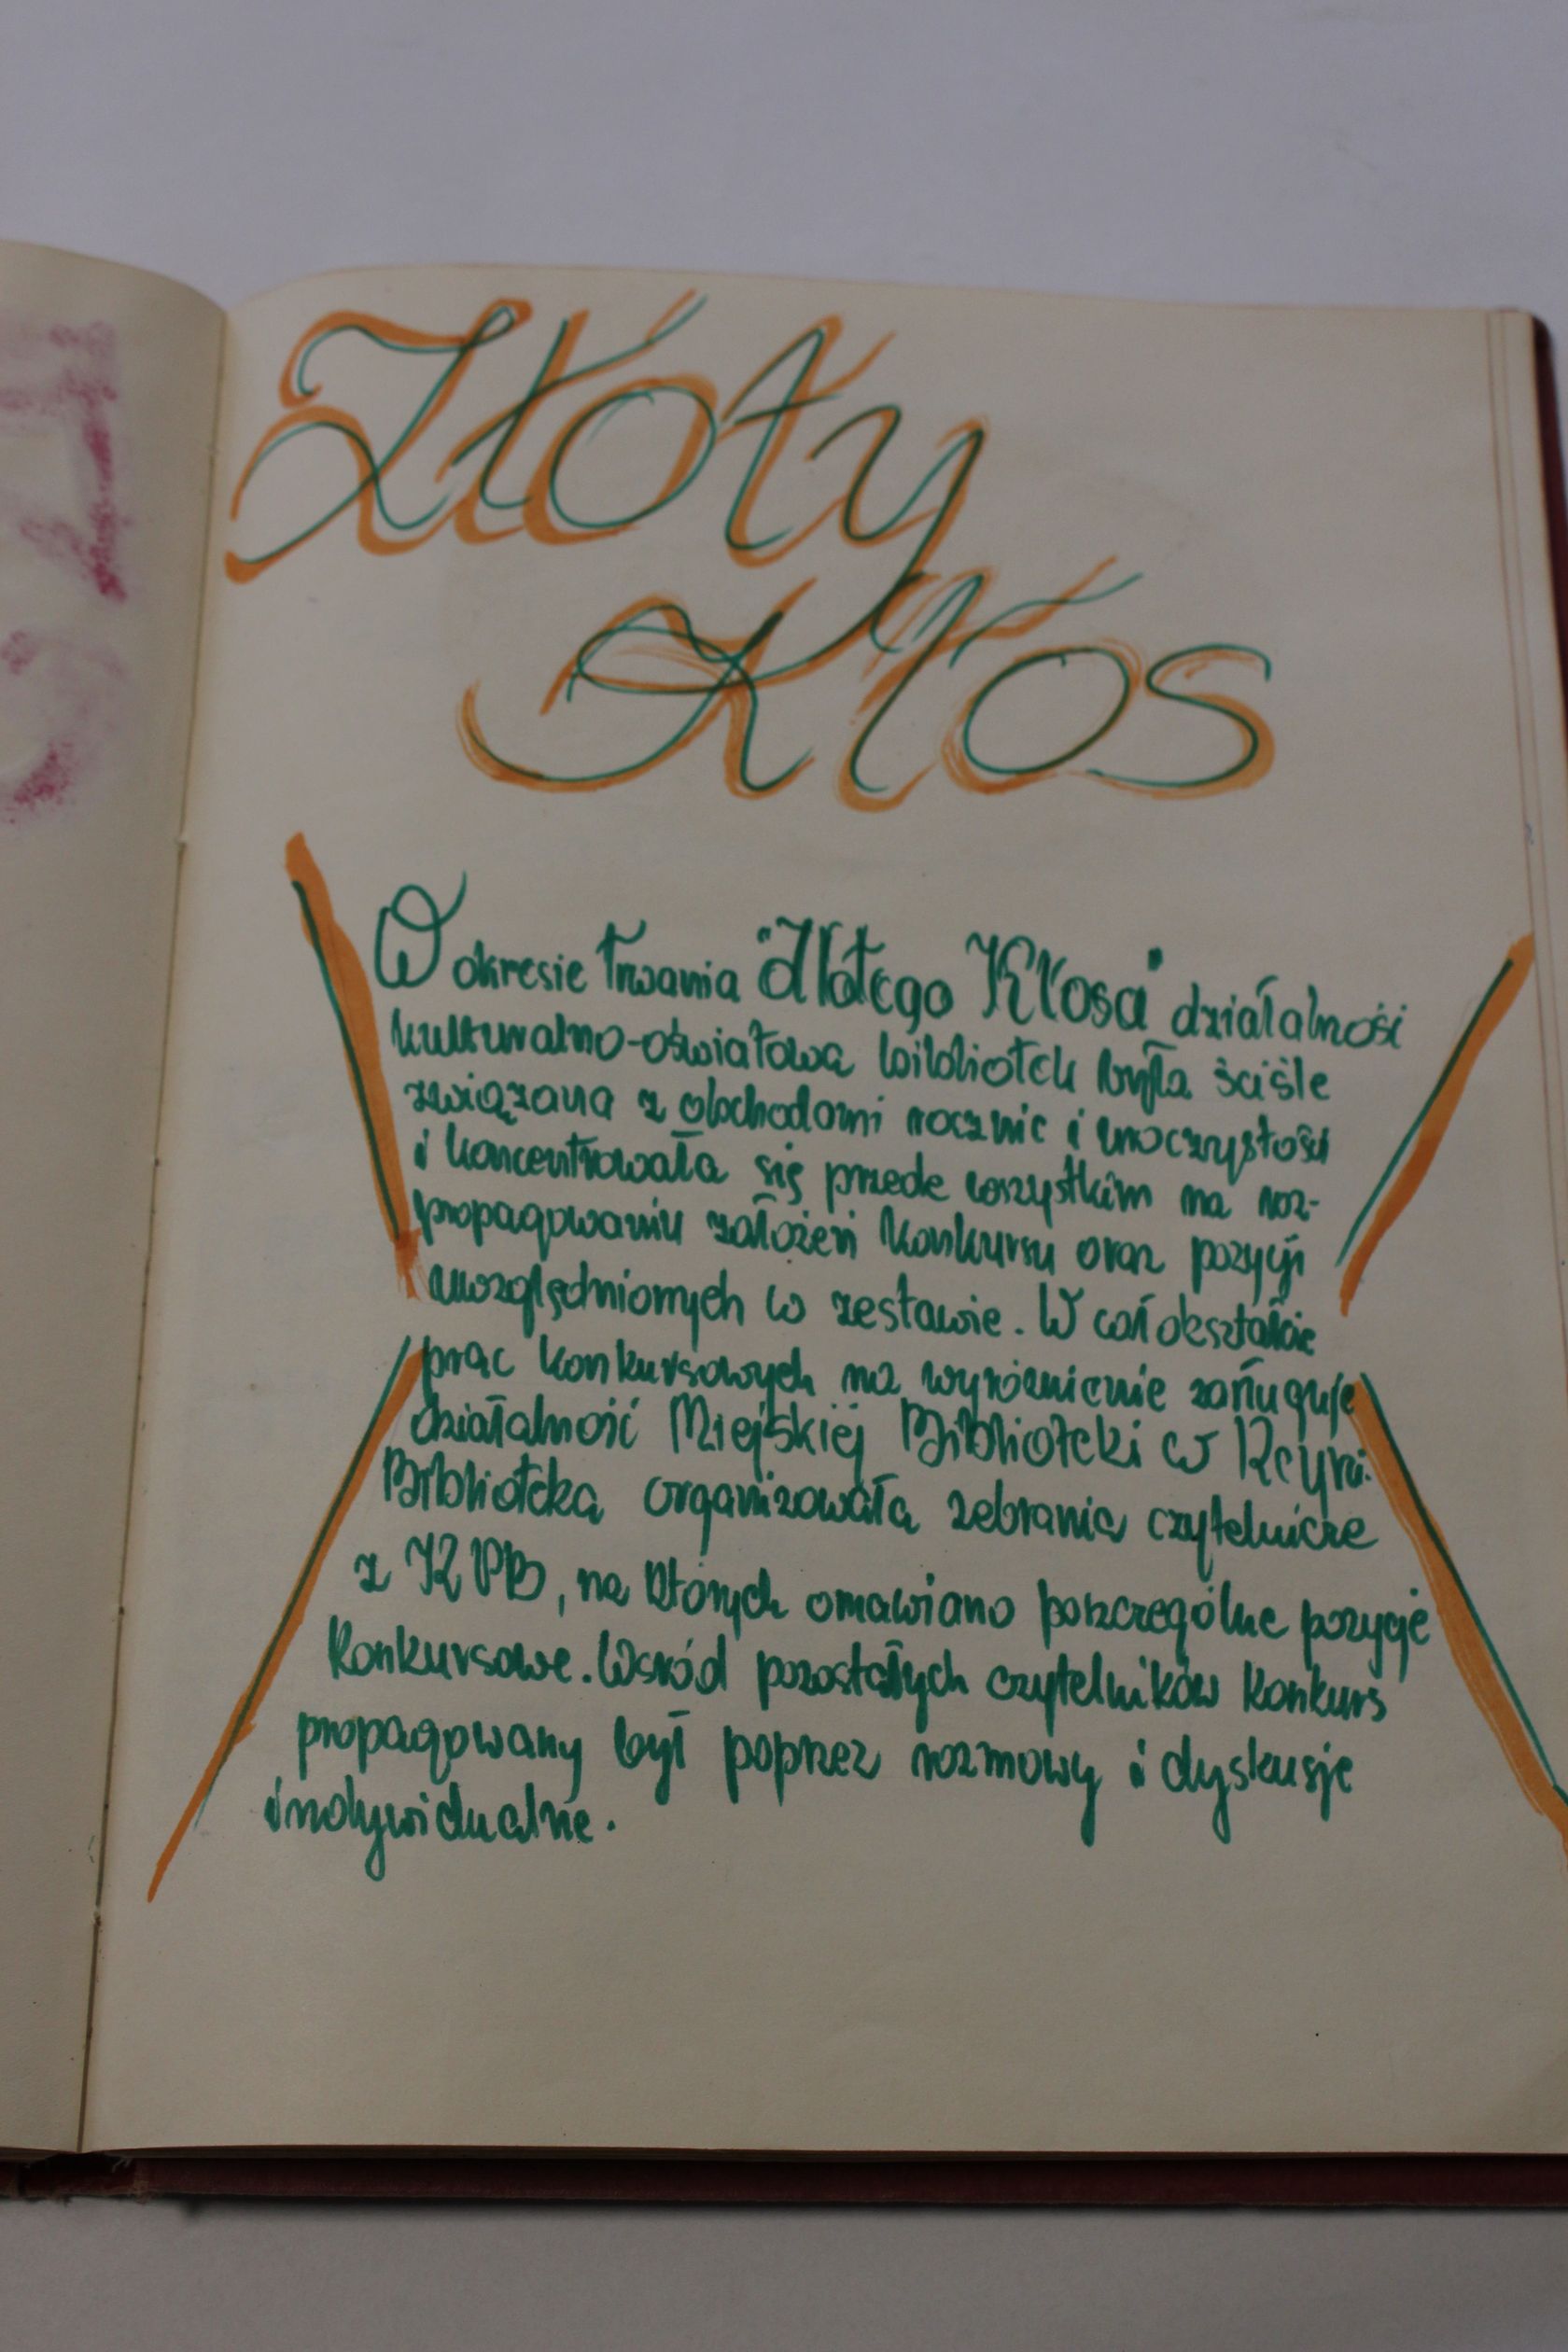 Złoty
Kłos
W okresie trwania "Złotego Kłosa" działalność
kulturalno-oświatowa bibliotek była ściśle
związana z obchodami rocznic i uroczystości
i koncentrowała się przede wszystkim na roz-
propagowaniu założeń konkursu oraz pozycji
uwzględnionych w zestawie. W całokształcie
prac konkursowych na wyróżnienie zasługuje
działalność Miejskiej Biblioteki w Kcyni.
Biblioteka organizowała zebrania czytelnicze
z KPB, na których omawiano poszczególne pozycje
konkursowe. Wsród pozostałych czytelników konkurs
propagowany był poprzez rozmowy i dyskusje
indywidualne.